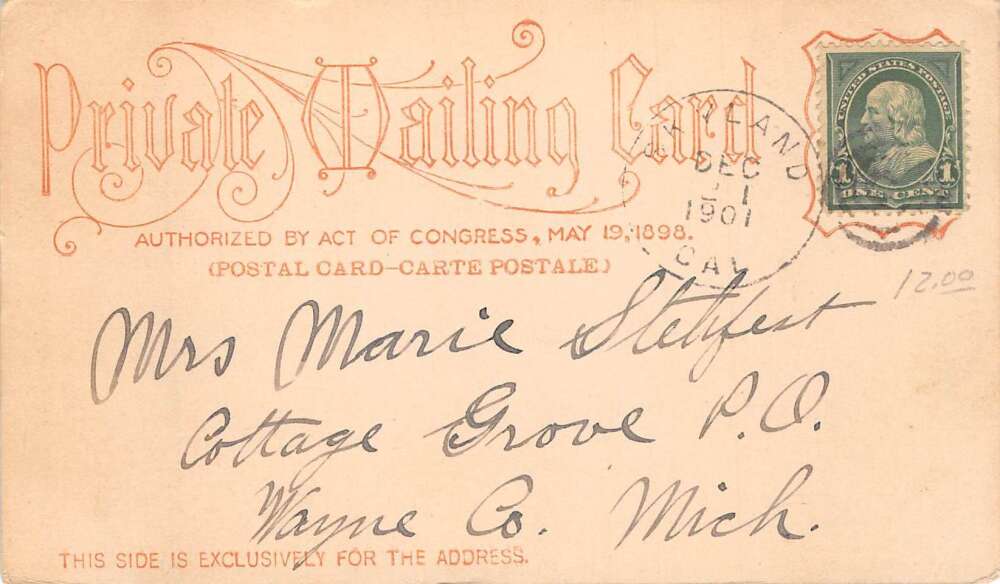 Private Mailing Card
AUTHORIZED BY ACT OF CONGRESS, MAY 19, 1898.
(POSTAL CARD–CARTE POSTALE)
DEC
1901
CAL
UNITED STATES POSTAGE
1 1
ONE CENT
12.00
Mrs Marie
Cottage Grove P.O.
Wayne Co. Mich.
THIS SIDE IS EXCLUSIVELY FOR THE ADDRESS.